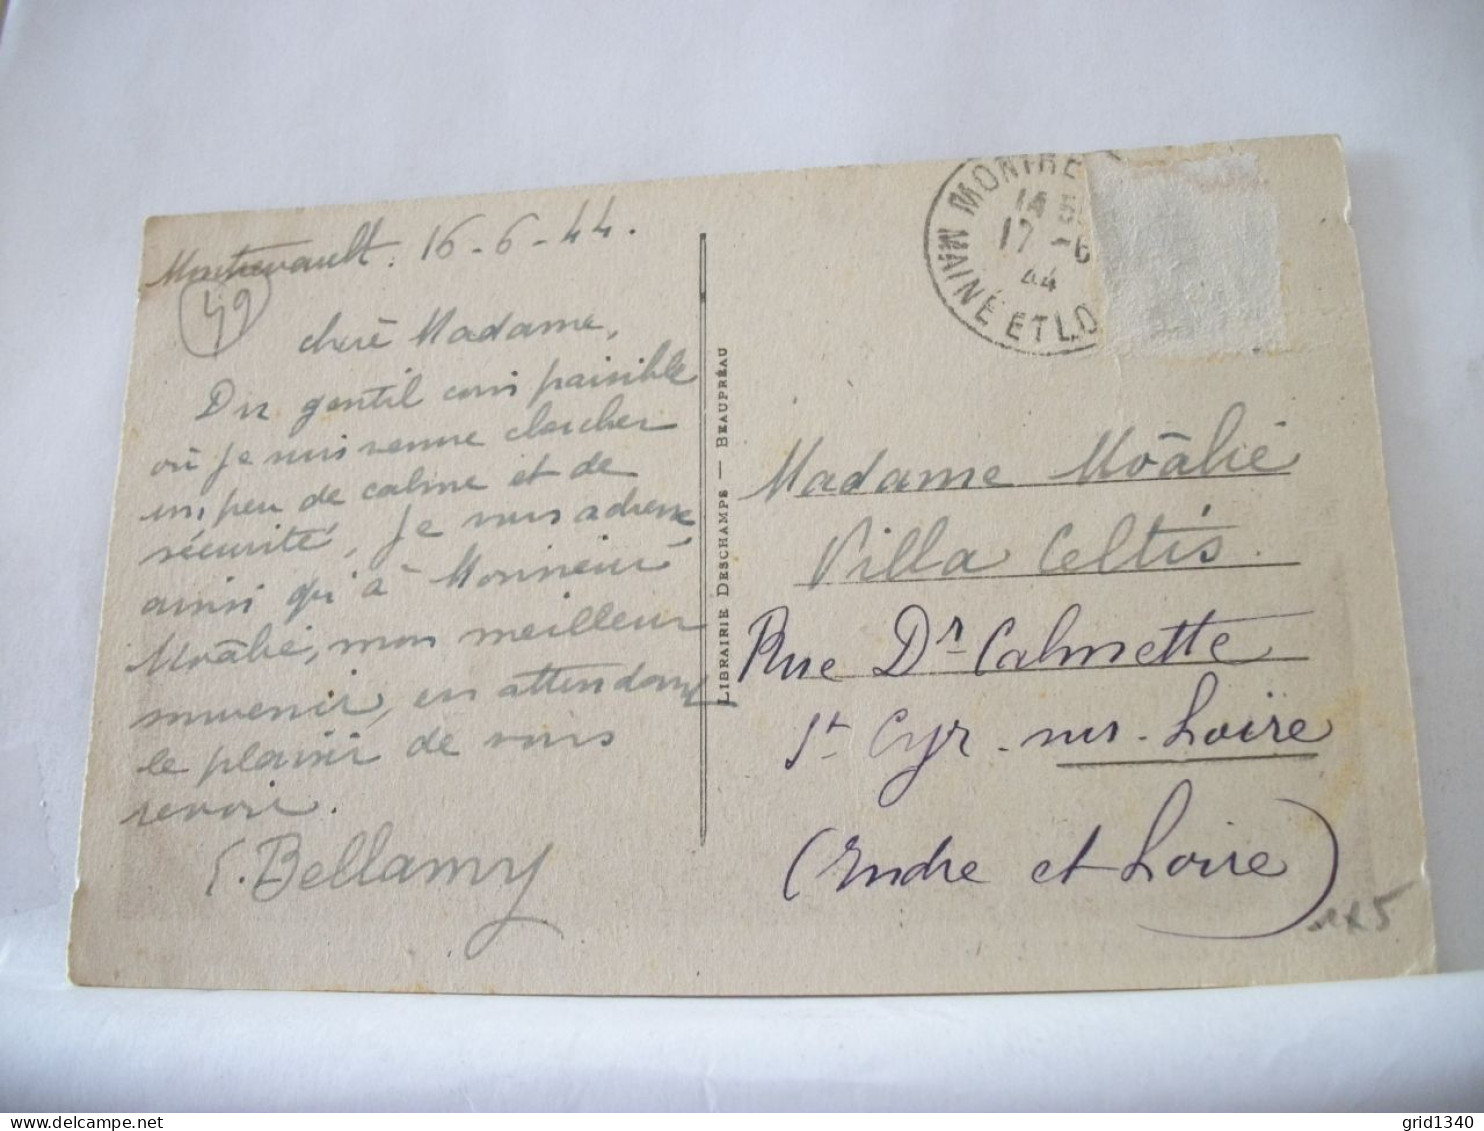 Montrevault. 16-6-44.
49
chère Madame,
Du gentil coin paisible
où je suis venue chercher
un peu de calme et de
sécurité, je vous adresse
ainsi qu'à Monsieur
Moâlié, mon meilleur
souvenir, en attendant
le plaisir de vous
revoir.
Bellamy
LIBRAIRIE DESCHAMPS — BEAUPRÉAU
MONTRE
17 -6
44
MAINE ET LO
Madame Moâlié
Villa Celtis.
Rue Dr Calmette
St Cyr-sur-Loire
(Indre et Loire)
grid1340